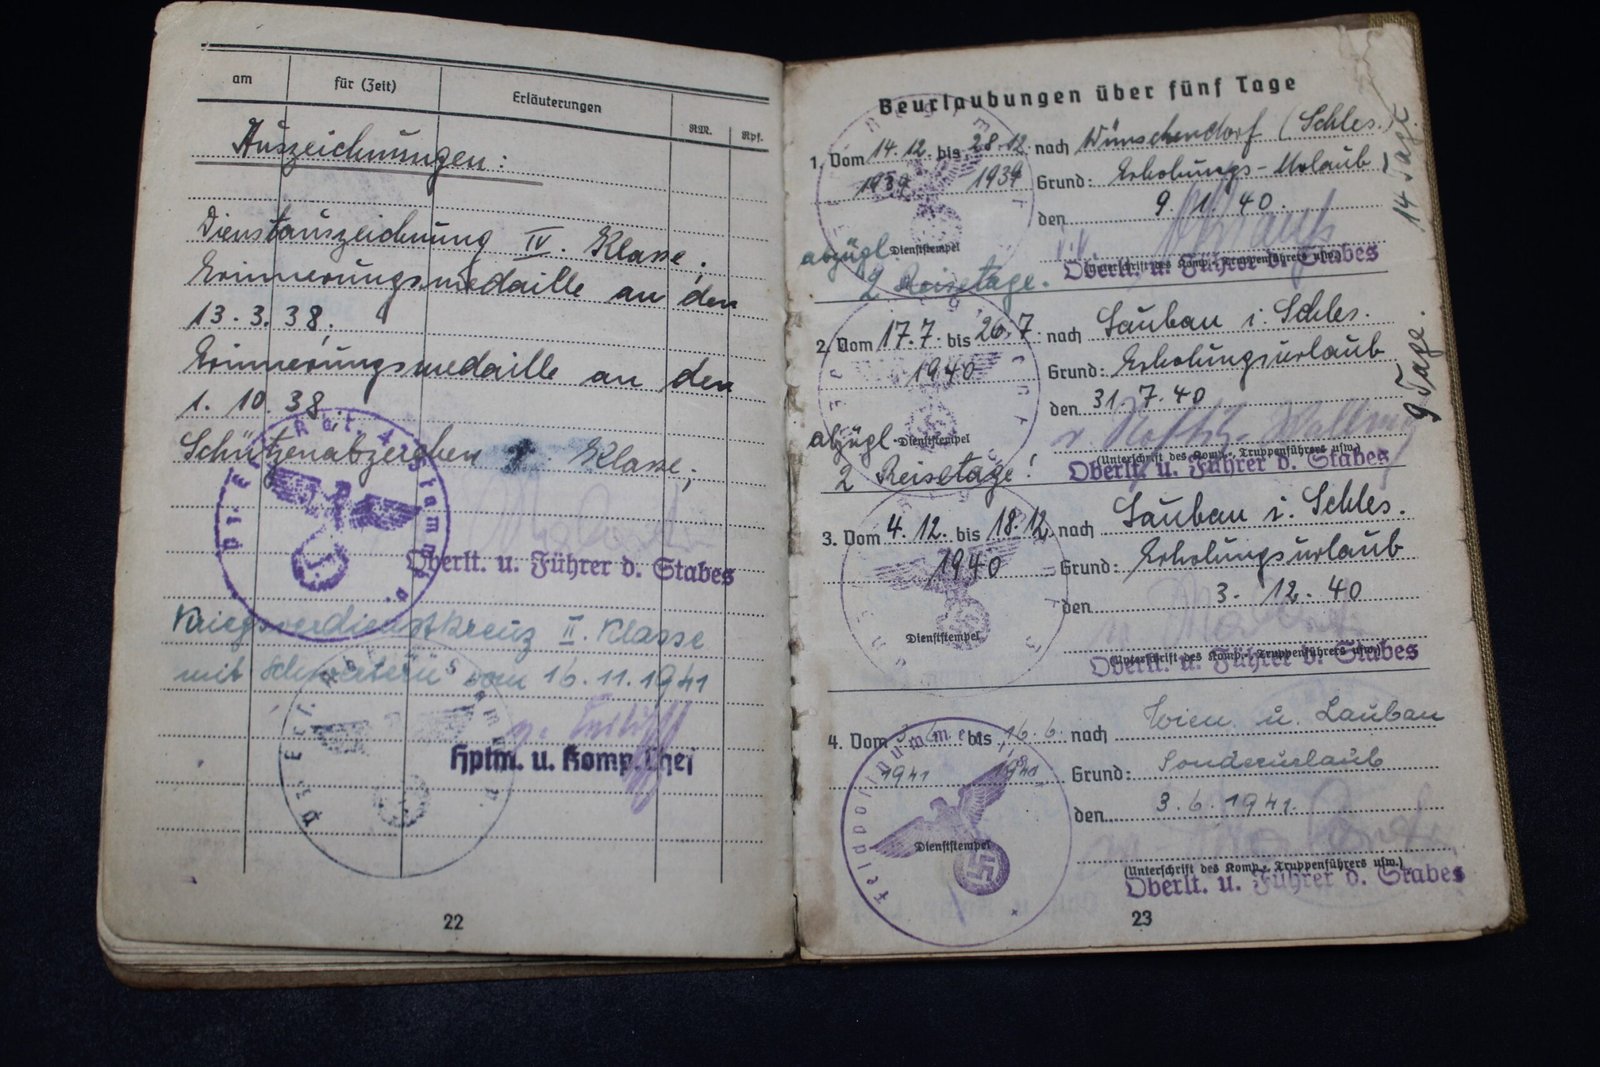 am
für (Zeit)
Erläuterungen
RM.
Rpf.
Auszeichnungen:
Dienstauszeichnung IV. Klasse;
Erinnerungsmedaille an den
13. 3. 38,
Erinnerungsmedaille an den
1. 10. 38.
Schützenabzeichen Klasse;
Oberlt. u. Führer d. Stabes
Kriegsverdienstkreuz II. Klasse
mit Schwertern vom 16. 11. 1941
Hptm. u. Komp. Chef
22
Beurlaubungen über fünf Tage
1. Vom 14.12. bis 28.12. nach Wünschendorf (Schles.)
1939 1939 Grund: Erholungs-Urlaub
den 9. 1. 40.
14 Tage.
abzügl. Dienststempel
(Unterschrift des Komp.-, Truppenführers usw.)
Oberlt. u. Führer d. Stabes
2 Reisetage.
2. Vom 17.7. bis 26.7. nach Lauban i. Schles.
1940 Grund: Erholungsurlaub
den 31. 7. 40
9 Tage.
abzügl. Dienststempel
(Unterschrift des Komp.-, Truppenführers usw.)
Oberlt. u. Führer d. Stabes
2 Reisetage!
3. Vom 4.12. bis 18.12. nach Lauban i. Schles.
1940 Grund: Erholungsurlaub
den 3. 12. 40
Dienststempel
(Unterschrift des Komp.-, Truppenführers usw.)
Oberlt. u. Führer d. Stabes
4. Vom 3.6. bis 16.6. nach Wien u. Lauban
1941 1941 Grund: Sonderurlaub
den 3. 6. 1941.
Feldpostnummer
Dienststempel
(Unterschrift des Komp.-, Truppenführers usw.)
Oberlt. u. Führer d. Stabes
23